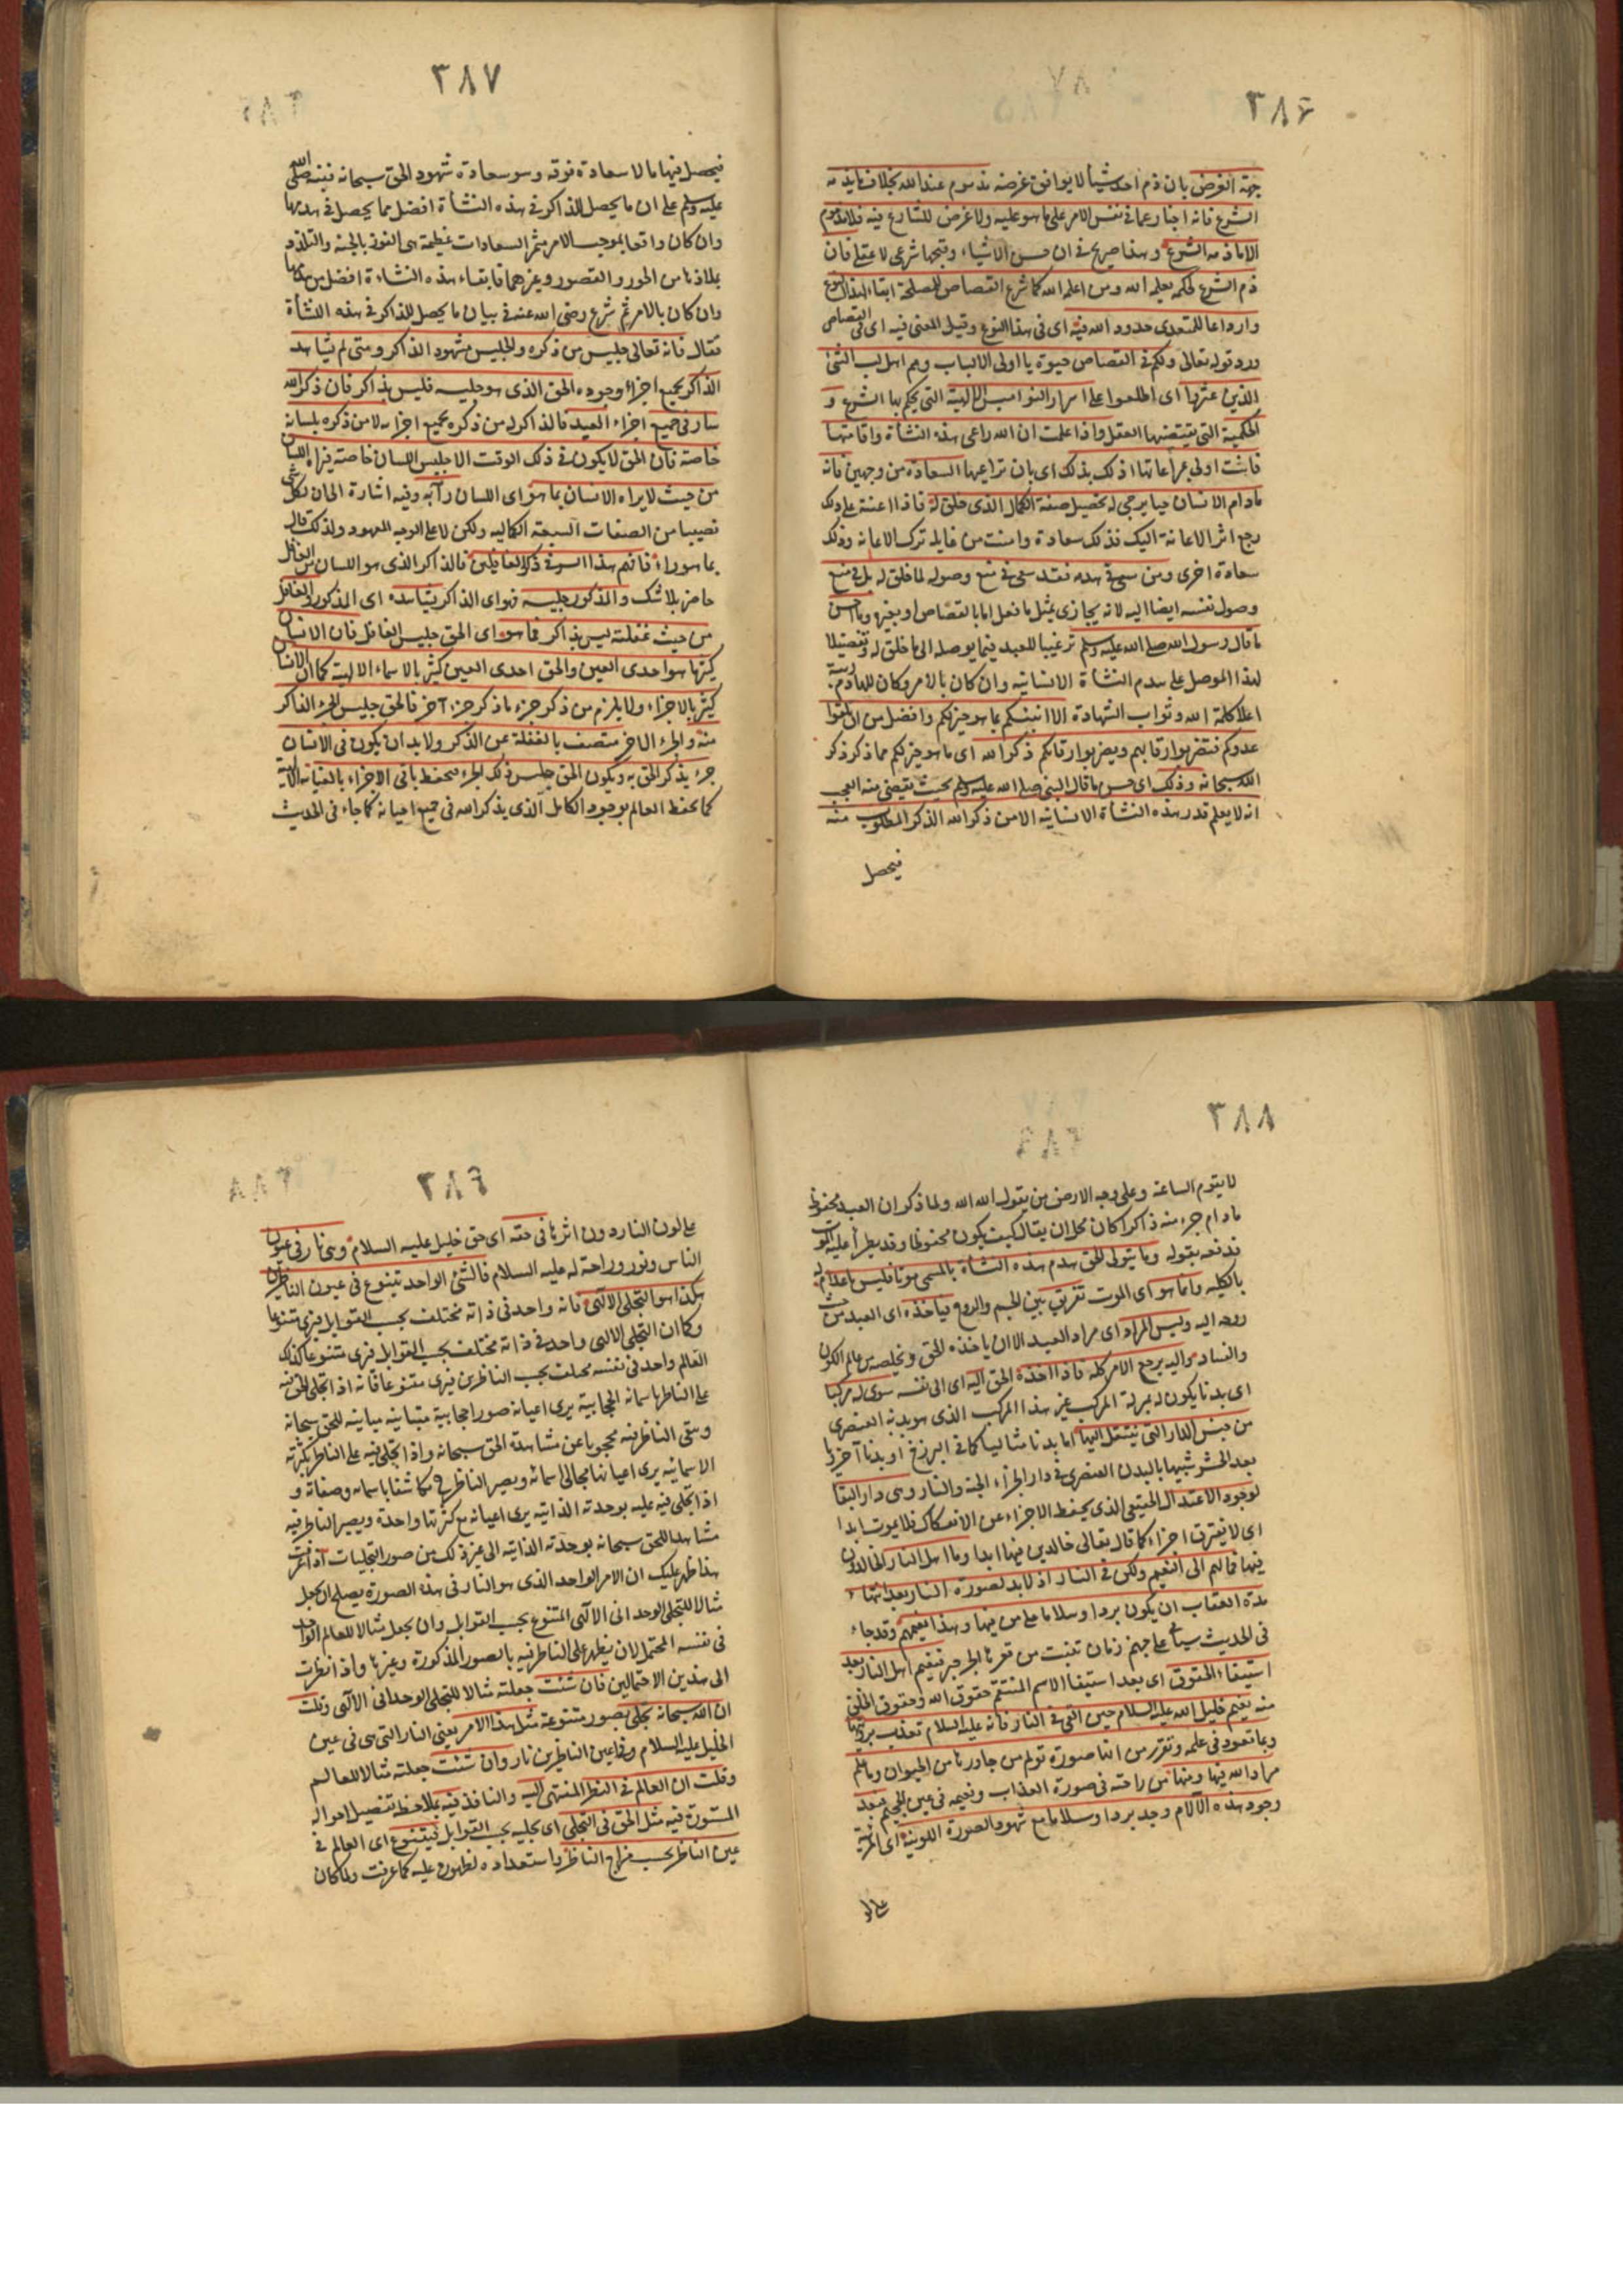 ٣٨۶
جهة الغرض بان ذم احد شيأ لا يوافق غرضه مذموم عند الله بخلاف ما يذمه
الشرع فانه اخبار عما فى نفس الامر على ما هو عليه ولا غرض للشارع فيه فلا مذموم
الا ما ذمه الشرع وهذا صريح فى ان حسن الاشياء وقبحها شرعى لا عقلى فان
ذم الشرع لحكمة يعلمها الله ومن اعلمه الله كما شرع القصاص للمصلحة ابقاء لهذا النوع
وارداعا للمتعدى حدود الله فيه اى فى هذا النوع وقيل المعنى فيه اى فى القصاص
ورد قوله تعالى ولكم فى القصاص حيوة يا اولى الالباب وهم اهل لب الشئ
الذين عثروا اى اطلعوا على اسرار النواميس الالهية التى يحكم بها الشرع و
الحكمية التى يقتضيها العقل واذا علمت ان الله راعى هذه النشأة واقامتها
فانت اولى بمراعاتها اذ لك بذلك اى بان تراعيها السعادة من وجهين فانه
مادام الانسان حيا يرجى له تحصيل صفة الكمال الذى خلق له فاذا اعنته على ذلك
رجع اثر الاعانة اليك فذلك سعادة وامنت من غايلة ترك الاعانة وذلك
سعادة اخرى ومن سعى فى هدمه فقد سعى فى منع وصوله لما خلق له بل فى منع
وصول نفسه ايضا اليه لانه يجازى بمثل ما فعل اما بالقصاص او بغيره وما احسن
ما قال رسول الله صلى الله عليه وسلم ترغيبا للعبد فيما يوصله الى ما خلق له وتفضيلا
لهذا الموصل على هدم النشأة الانسانية وان كان بالامر وكان للهادم رتبة
اعلا كلمة الله وثواب الشهادة الا انبئكم بما هو خير لكم وافضل من ان تلقوا
عدوكم فتضربوا رقابهم ويضربوا رقابكم ذكر الله اى ما هو خير لكم مما ذكر ذكر
الله سبحانه وذلك اى حسن ما قال النبى صلى الله عليه وسلم بحيث يقضى منه العجب
انه لا يعلم قدر هذه النشأة الانسانية الا من ذكر الله الذكر المطلوب منه
فيحصل
٣٨٧
فيحصل فيها ما لا سعادة فوقه وهو سعادة شهود الحق سبحانه فنبه صلى الله
عليه وسلم على ان ما يحصل للذاكر فى هذه النشأة افضل مما يحصل فى هدمها
وان كان واقعا بموجب الامر مثمر السعادات عظيمة هى الفوز بالجنة والتلذذ
بملاذها من الحور والقصور وغيرهما فابقاء هذه النشاءة افضل من هدمها
وان كان بالامر ثم شرع رضى الله عنه فى بيان ما يحصل للذاكر فى هذه النشأة
فقال فانه تعالى جليس من ذكره والجليس مشهود الذاكر ومتى لم يشاهد
الذاكر بجميع اجزاء وجوده الحق الذى هو جليسه فليس بذاكر فان ذكر الله
سار فى جميع اجزاء العبد فالذاكر له من ذكره بجميع اجزائه لا من ذكره بلسانه
خاصة فان الحق لا يكون فى ذلك الوقت الا جليس اللسان خاصة فيراه اللسان
من حيث لا يراه الانسان بما هو اى اللسان راآه وفيه اشارة الى ان لكل شئ
نصيبا من الصفات السبعة الكمالية ولكن لا على الوجه المعهود ولذلك قال
بما هو راء فافهم هذا السر فى ذكر الغافلين فالذاكر الذى هو اللسان من الغافل
حاضر بلا شك والمذكور جليسه فهو اى الذاكر يشاهده اى المذكور والغافل
من حيث غفلته ليس بذاكر فما هو اى الحق جليس الغافل فان الانسان
كثير ما هو احدى العين والحق احدى العين كثير بالاسماء الالهية كما ان الانسان
كثير بالاجزاء ولا يلزم من ذكر جزء ما ذكر جزء آخر فالحق جليس الجزء الذاكر
منه والجزء الاخر متصف بالغفلة عن الذكر ولا بد ان يكون فى الانسان
جزء يذكر الحق به ويكون الحق جليس ذلك الجزء فيحفظ باقى الاجزاء بالعناية الالهية
كما يحفظ العالم بوجود الكامل الذى يذكر الله فى جميع احيانه كما جاء فى الحديث
٣٨٨
لا يقوم الساعة وعلى وجه الارض من يقول الله الله ولما ذكر ان العبد محفوظ
مادام جزء منه ذاكرا كان محل ان يقال كيف يكون محفوظا وقد يطرأ عليه الموت
فدفعه بقوله وما يتولى الحق هدم هذه النشأة بالمسمى موتا فليس باعدام له
بالكلية وانما هو اى الموت تفريق بين الجسم والروح فياخذه اى العبد من حيث
روحه اليه وليس المراد اى مراد العبد الا ان ياخذه الحق ويخلصه من عالم الكون
والفساد واليه يرجع الامر كله فاذا اخذه الحق اليه اى الى نفسه سوى له مركبا
اى بدنا يكون له بمنزلة المركب غير هذا المركب الذى هو بدنه العنصرى
من جنس الدار التى ينتقل اليها اما بدنا مثاليا كما فى البرزخ او بدنا آخر كما
بعد الحشر شبيها بالبدن العنصرى فى دار الجزاء الجنة والنار وهى دار البقا
لوجود الاعتدال الحقيقى الذى يحفظ الاجزاء عن الانفكاك فلا يموت ابدا
اى لا يفترق اجزاءه كما قال تعالى خالدين فيها ابدا واما اهل النار الخالدون
فيها فمالهم الى النعيم ولكن فى النار اذ لا بد لصورة النار بعد انتهاء
مدة العقاب ان يكون بردا وسلاما على من فيها وهذا نعيمهم وقد جاء
فى الحديث سيأتى على جهنم زمان تنبت من قعرها الجرجير فنعيم اهل النار بعد
استيفاء الحقوق اى بعد استيفا الاسم المنتقم حقوق الله وحقوق الخلق
منه نعيم خليل الله عليه السلام حين القى فى النار فانه عليه السلام تعذب برؤيتها
وبما تعود فى علمه وتقرر من انها صورة تولم من جاورها من الحيوان وما علم
مراد الله فيها ومنها من راحته فى صورة العذاب ونعيمه فى عين الجحيم فبعد
وجود هذه الآلام وجد بردا وسلاما مع شهود الصورة اللونية اى المرئية
على لو
٣٨۴
على لون النار دون اثرها فى حقه اى حق خليل عليه السلام وهى نار فى عيون
الناس ونور وراحة له عليه السلام فالشئ الواحد يتنوع فى عيون الناظرين
هكذا هو التجلى الالهى فانه واحد فى ذاته مختلف بحسب القوابل فيرى متنوعا
وكما ان التجلى الالهى واحد فى ذاته مختلف بحسب القوابل فيرى متنوعا كذلك
العالم واحد فى نفسه مختلف بحسب الناظرين فيرى متنوعا فانه اذا تجلى الحق فيه
على الناظر باسمائه الحجابية يرى اعيانه صورا حجابية متباينة مباينة للحق سبحانه
وبقى الناظر فيه محجوبا عن مشاهدة الحق سبحانه واذا تجلى فيه على الناظر بكثرته
الاسمائية يرى اعيانها مجالى اسمائه ويصير الناظر فيه مكاشفا باسمائه وصفاته و
اذا تجلى فيه عليه بوحدته الذاتية يرى اعيانه مع كثرتها واحدة ويصير الناظر فيه
مشاهدا للحق سبحانه بوحدته الذاتية الى غير ذلك من صور التجليات اذا عرفت
هذا ظهر عليك ان الامر الواحد الذى هو النار فى هذه الصورة يصلح ان يجعل
مثالا للتجلى الوحدانى الالهى المتنوع بحسب القوابل وان يجعل مثالا للعالم الواحد
فى نفسه المحتمل لان يظهر على الناظر فيه بالصور المذكورة وغيرها واذا نظرت
الى هذين الاحتمالين فان شئت جعلته مثالا للتجلى الوحدانى الالهى وقلت
ان الله سبحانه تجلى بصور متنوعة مثل هذا الامر يعنى النار التى هى فى عين
الخليل عليه السلام وفى اعين الناظرين نار وان شئت جعلته مثالا للعالم
وقلت ان العالم فى النظر المنتهى اليه والنافذ فيه بملاحظة تفصيل احواله
المستورة فيه مثل الحق فى التجلى اى تجليه بحسب القوابل فيتنوع اى العالم فى
عين الناظر بحسب مزاج الناظر واستعداده لظهوره عليه كما عرفت ولما كان